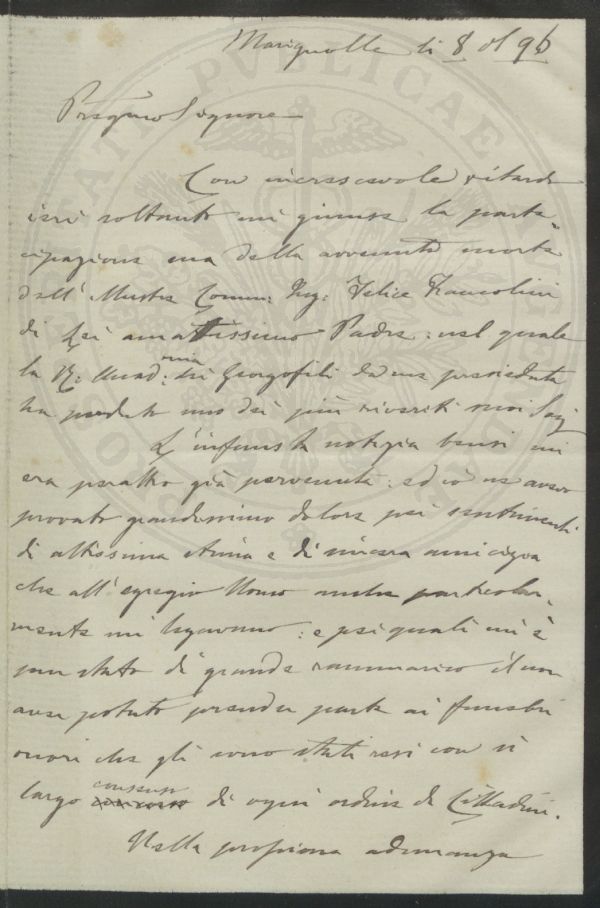 Marignolle li 8 91 96
Pregmo Signore
Con increscevole ritardo
ieri soltanto mi giunse la parte-
cipazione ma della avvenuta morte
dell' Illustre Comm: Ing: Felice Francolini
di Lei amatissimo Padre: nel quale
la R: Accad:mia dei Georgofili da me presieduta
ha perduto uno dei più riveriti suoi Socj
L'infausta notizia bensì mi
era peraltro già pervenuta: ed io ne avevo
provato grandissimo dolore pei sentimenti
di altissima stima e di sincera amicizia
che all' egregio Uomo anche particolar-
mente mi legavano: e pei quali mi è
pur stato di grande rammarico il non
aver potuto prender parte ai funebri
onori che gli sono stati resi con sì
largo consenso di ogni ordine di Cittadini.
Nella prossima adunanza
PROSPERITATI PVBLICAE AVGENDAE